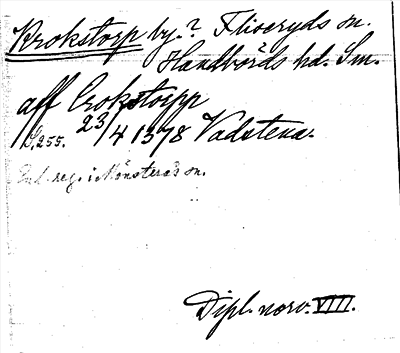 Krokstorp by.? Fliseryds sn.
Handbörds hd. Sm.
aff Crokstorpp
S. 255. 23/4 1378 Vadstena.
Enl. reg. i Mönsterås sn.
Dipl. norv. VIII.